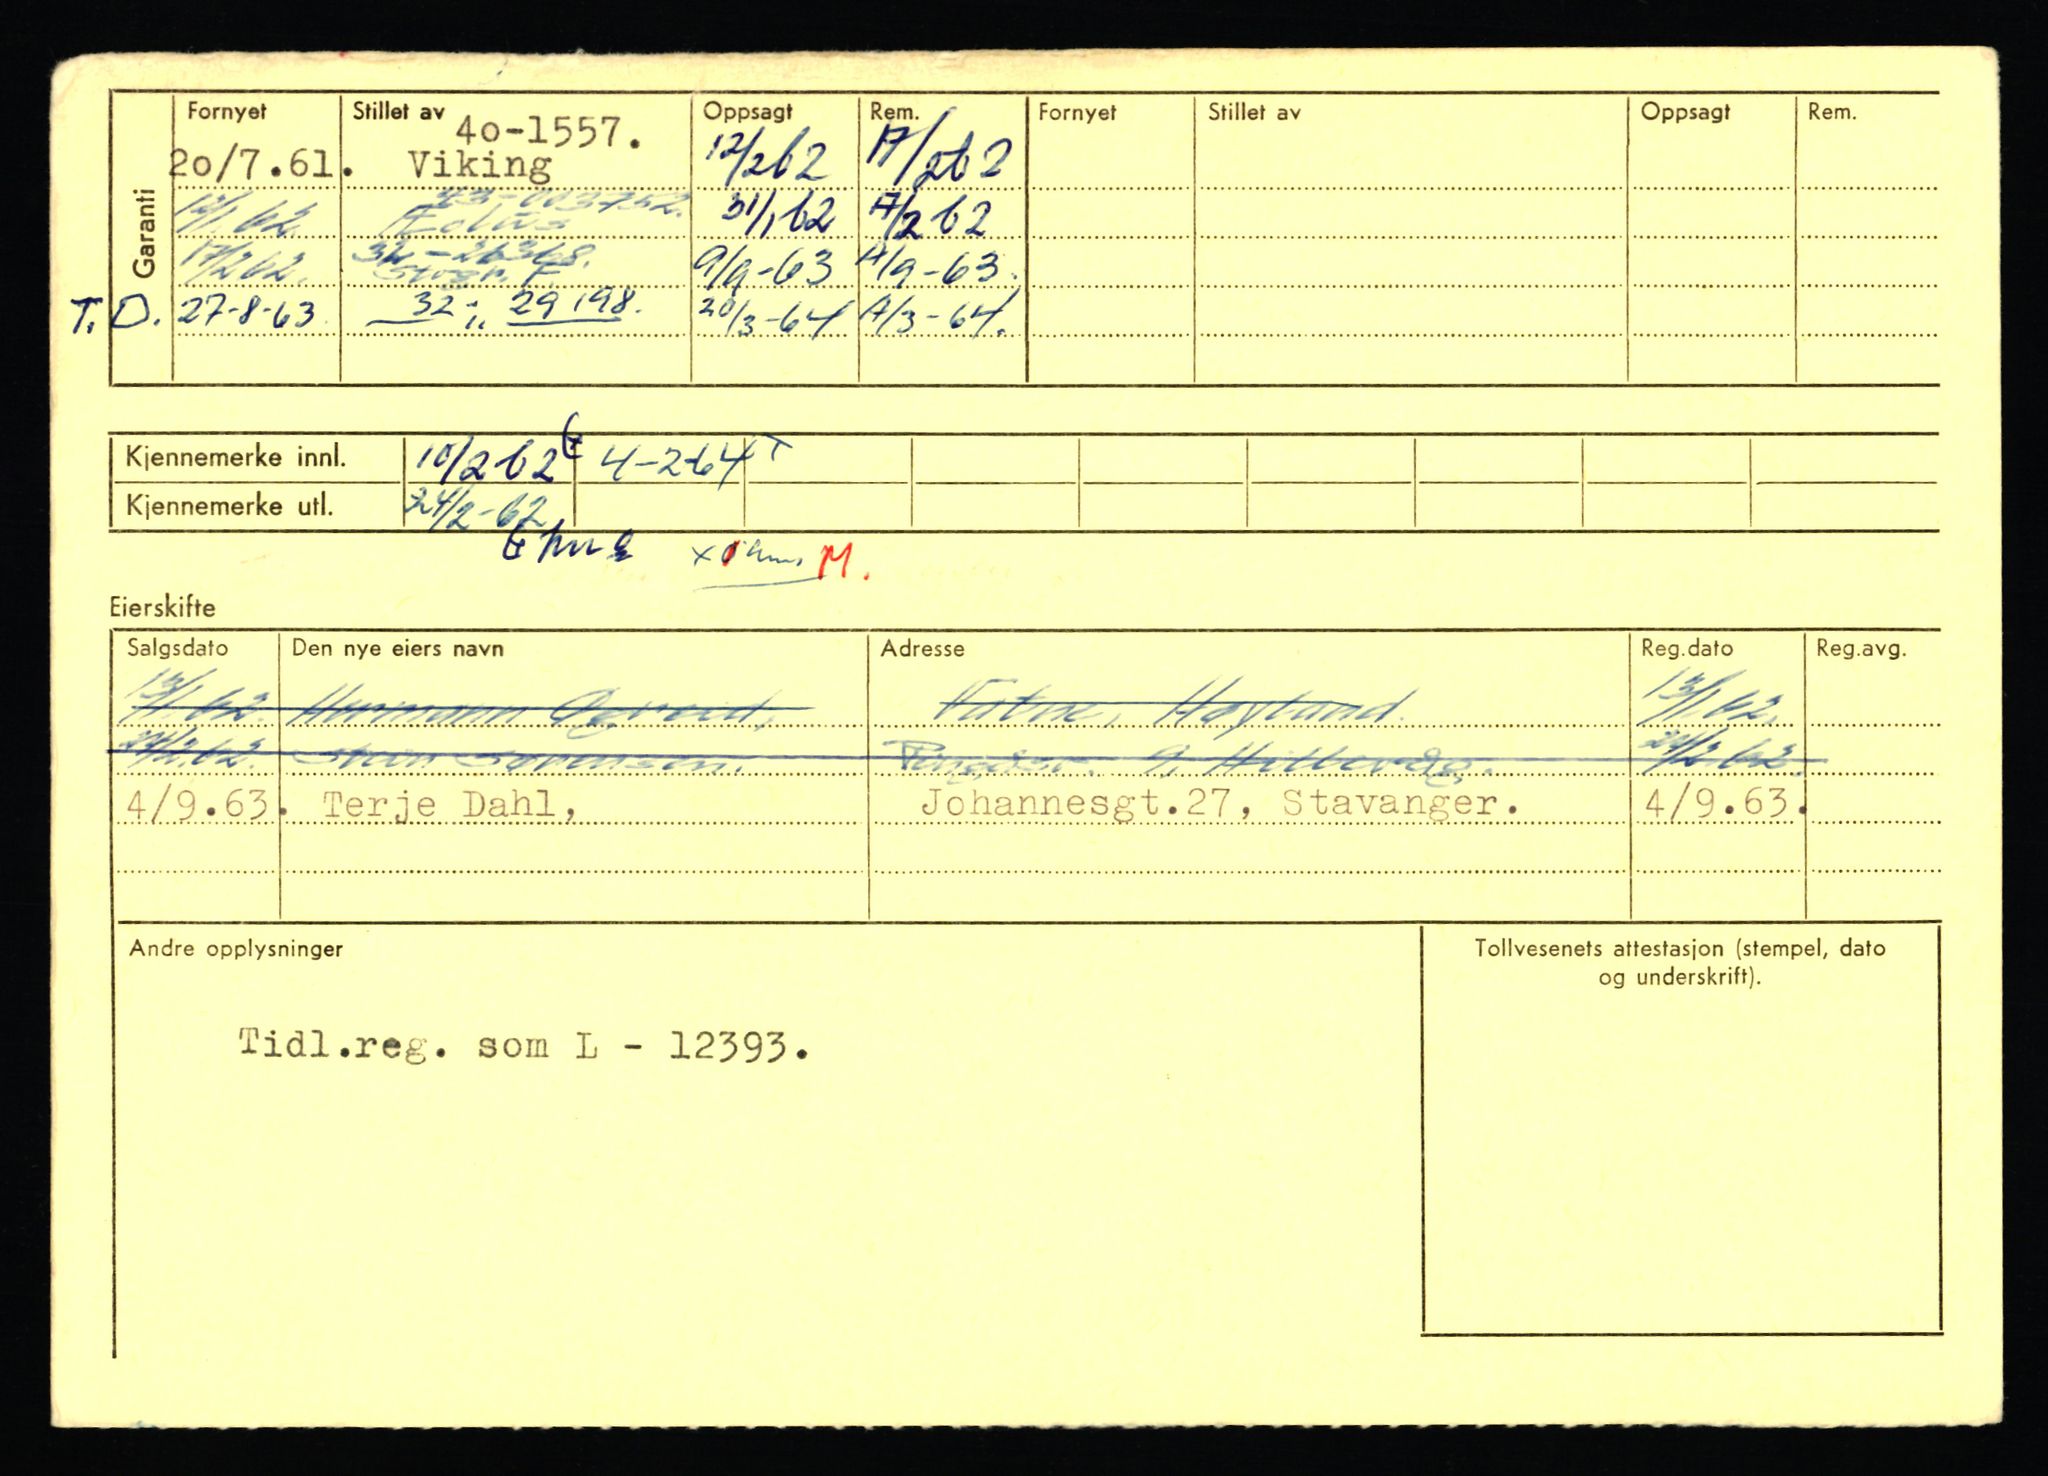 Garanti
Fornyet Stillet av Oppsagt Rem. Fornyet Stillet av Oppsagt Rem.
4o-1557.
2o/7.61. Viking 12/2 62 17/2 62
12/1 62 Æolus 31/1 62 17/2 62
32-26368.
17/2 62. 9/9-63 -63
T.D. 27-8-63 32-29198. 20/3-64 -64.
Kjennemerke innl. 10/2 62 4-2-64
Kjennemerke utl. 24/2-62
M.
Eierskifte
Salgsdato Den nye eiers navn Adresse Reg.dato Reg.avg.
13/1 62. Hermann Høyland. 13/1 62.
24/2 62. Sørensen. Hillevåg. 24/2 62.
4/9.63. Terje Dahl, Johannesgt.27, Stavanger. 4/9.63.
Andre opplysninger
Tollvesenets attestasjon (stempel, dato
og underskrift).
Tidl.reg. som L - 12393.